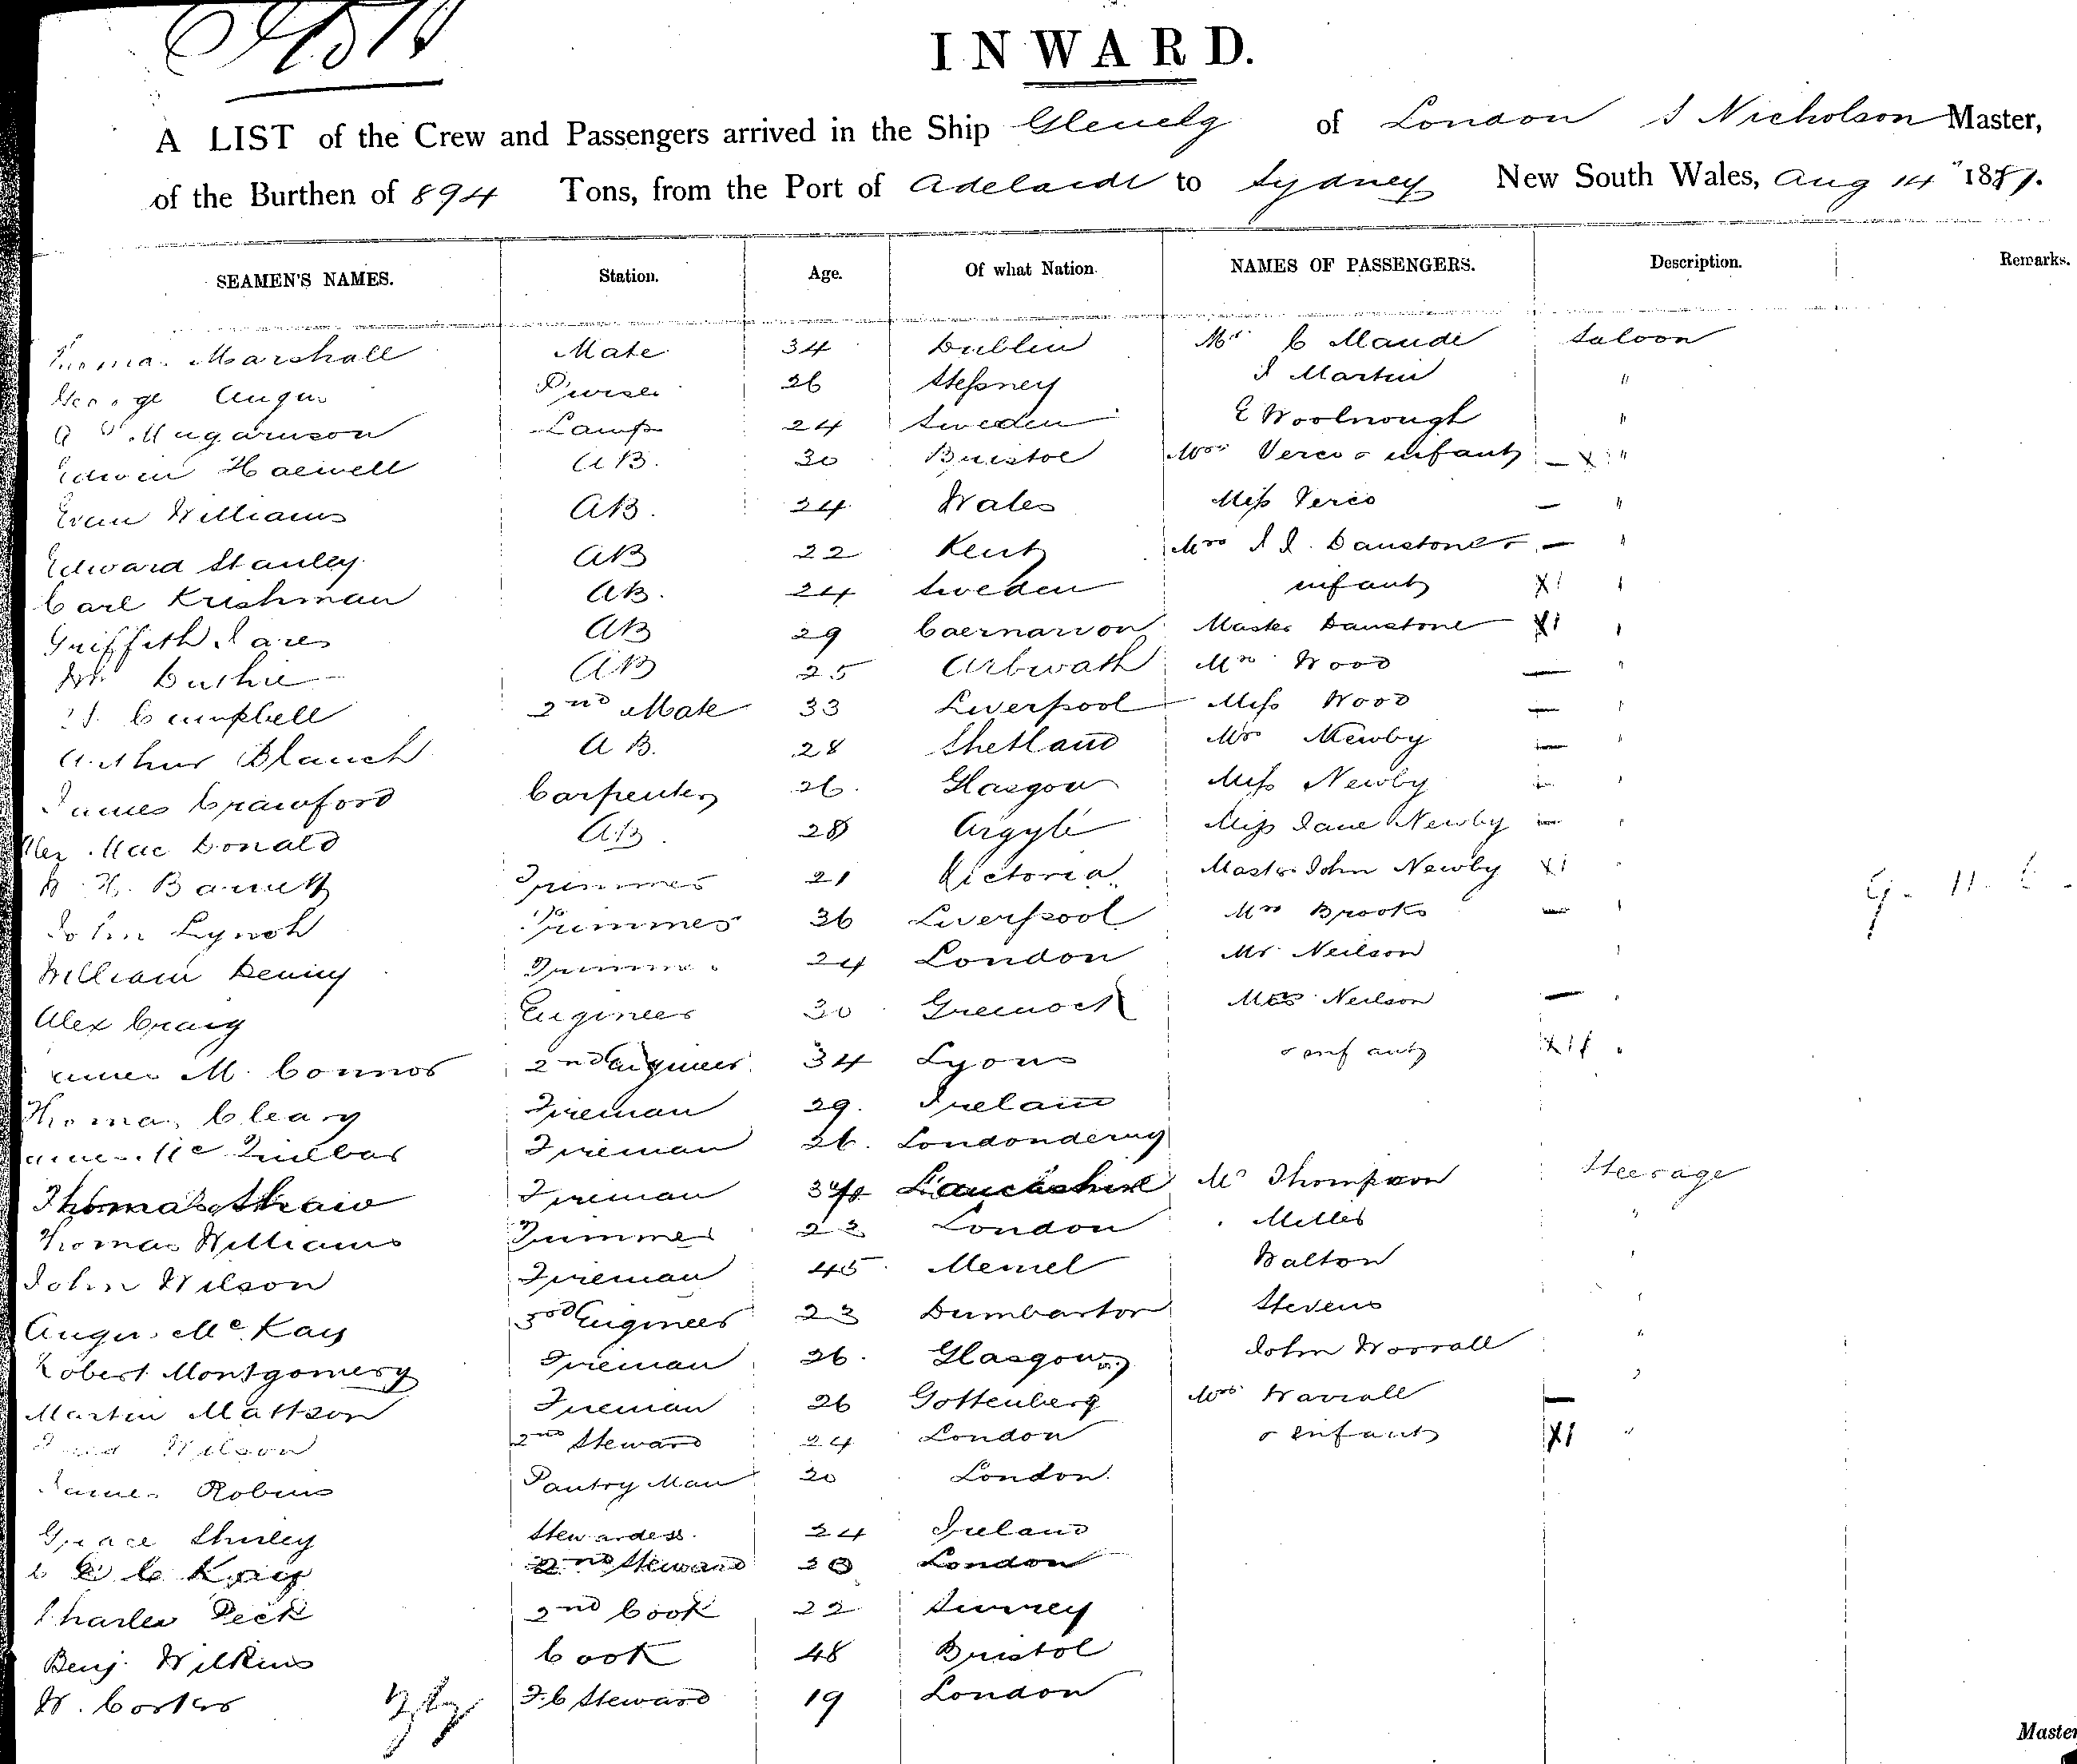 INWARD.
A LIST of the Crew and Passengers arrived in the Ship Glenelg of London J Nicholson Master,
of the Burthen of 894 Tons, from the Port of Adelaide to Sydney New South Wales, Aug 14 "1887.
SEAMEN'S NAMES. Station. Age. Of what Nation. NAMES OF PASSENGERS. Description. Remarks.
Thomas Marshall Mate 34 Dublin Mr C Maude Saloon
George Angus Purser 26 Stepney J Martin "
Lamps 24 Sweden E Woolnough "
Edwin Halwell AB. 30 Bristol Mrs Verco & infant — X 1 "
Evan Williams AB. 24 Wales Miss Verco — "
Edward Stanley AB 22 Kent Mrs J J. Danstone & — "
Carl Krishman AB. 24 Sweden infant X1 "
Griffith AB 29 Caernarvon Master Danstone X1 "
Wm Duthie AB 25 Arbroath Mrs Wood — "
Campbell 2nd Mate 33 Liverpool Miss Wood — "
Arthur Blanch A B. 28 Shetland Mrs Newby — "
James Crawford Carpenter 26. Glasgow Miss Newby — "
Alex MacDonald AB. 28 Argyle Miss Jane Newby — "
H. Barnett Trimmer 21 Victoria Master John Newby X1 "
John Lynch Trimmer 36 Liverpool Mrs Brooks — "
William Denny Trimmer 24 London Mr Neilson "
Alex Craig Engineer 30 Greenock Mrs Neilson — "
James M. Connor 2nd Engineer 34 Lyons & infant X1 "
Thomas Cleary Fireman 29. Ireland
James Mc Fireman 26. Londonderry
Thomas Shaw Fireman Lancashire Mr Thompson Steerage
Thomas Williams Trimmer 23 London " Miller "
John Wilson Fireman 45 Memel Walton "
Angus Mc Kay 3rd Engineer 23 Dumbarton Stevens "
Robert Montgomery Fireman 26. Glasgow John Worrall "
Martin Mattson Fireman 26 Gottenberg Mrs Warrall — "
Wilson 2nd Steward 24 London & infant X1 "
James Robins Pantry Man 20 London.
Grace Shirley Stewardess. 24 Ireland
C Kay 2nd Steward London
Charles Peck 2nd Cook 22 Surrey
Benj. Wilkins Cook 48 Bristol
W. F.C Steward 19 London
Master